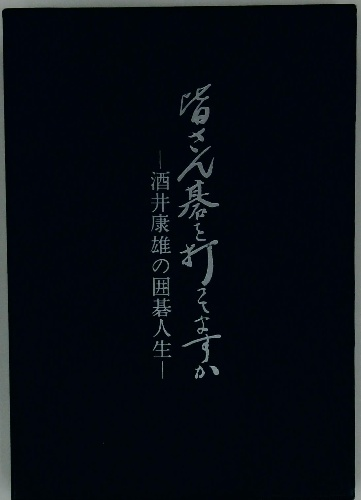 皆さん碁を打ってますか
―酒井康雄の囲碁人生―